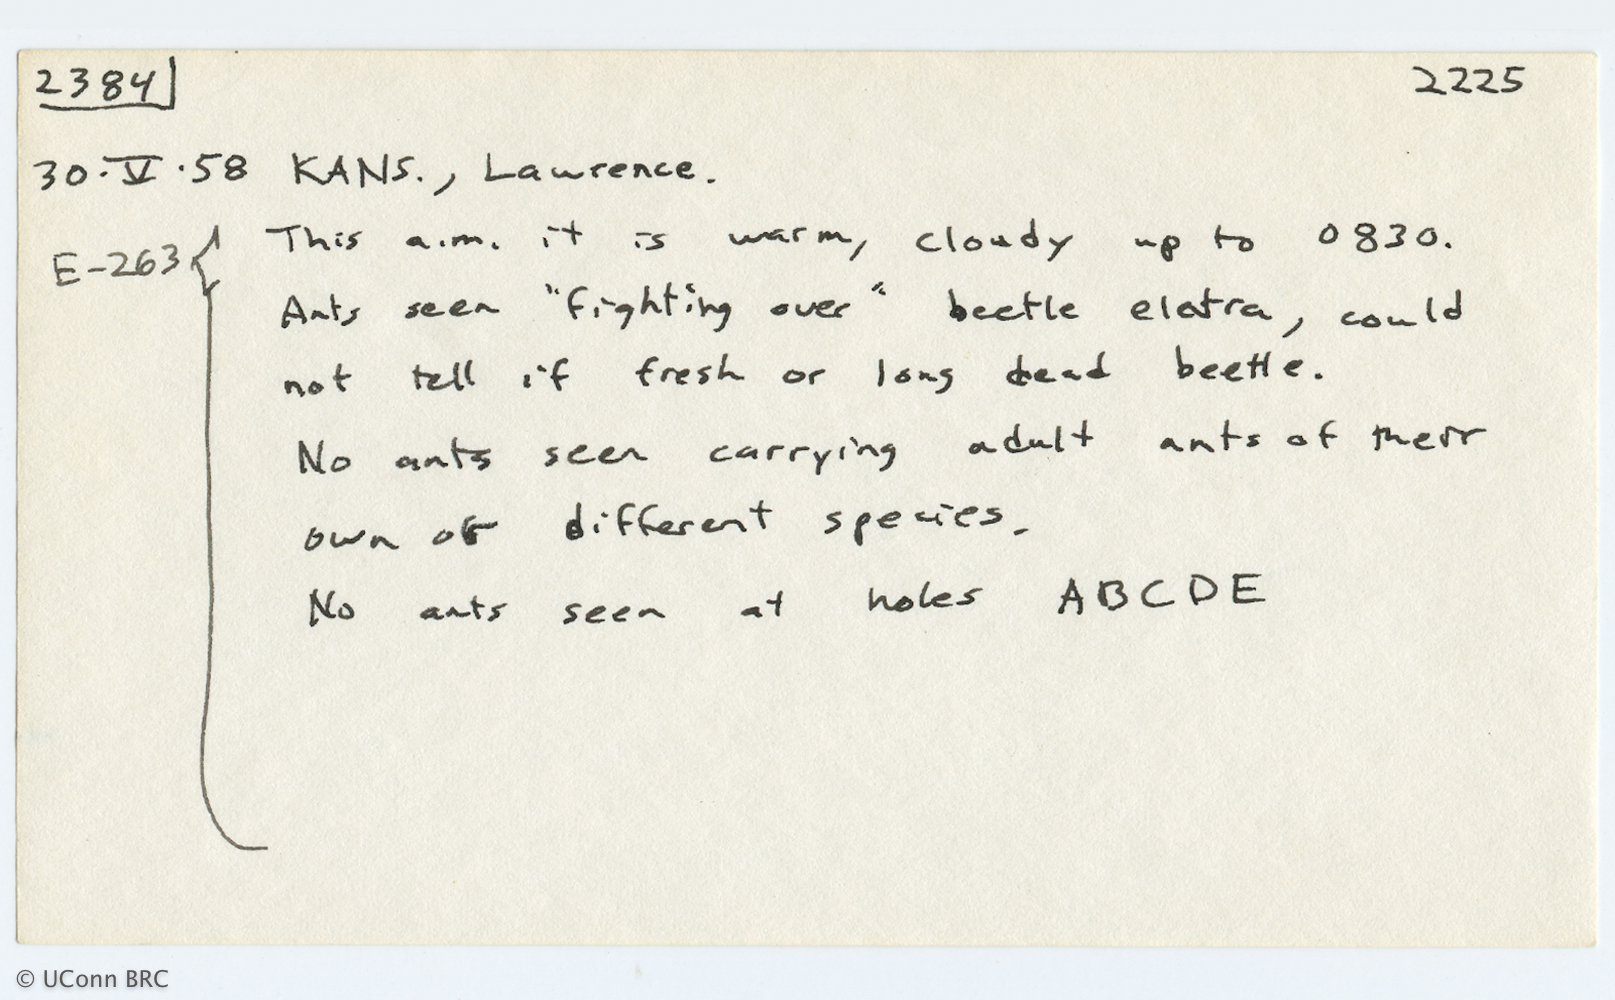 2384 2225
30·V·58 KANS., Lawrence.
E-263 { This a.m. it is warm, cloudy up to 0830.
Ants seen "fighting over" beetle elatra, could
not tell if fresh or long dead beetle.
No ants seen carrying adult ants of their
own or different species.
No ants seen at holes ABCDE
© UConn BRC